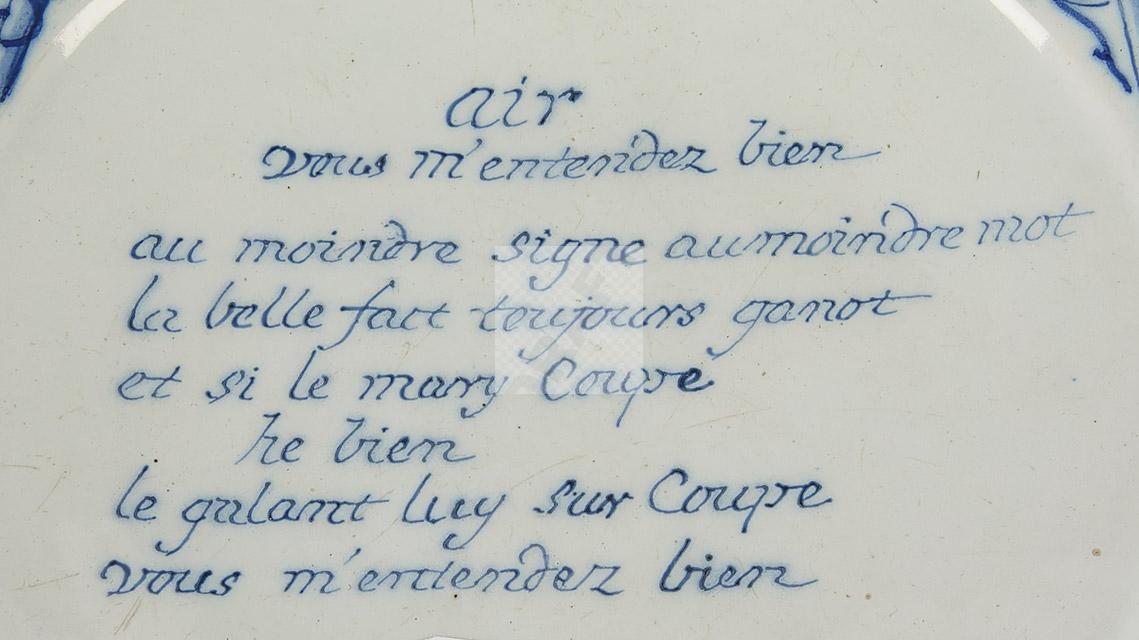 air
vous m'entendez bien
au moindre signe au moindre mot
la belle fait toujours ganot
et si le mary Coupe
he bien
le galant luy sur Coupe
vous m'entendez bien